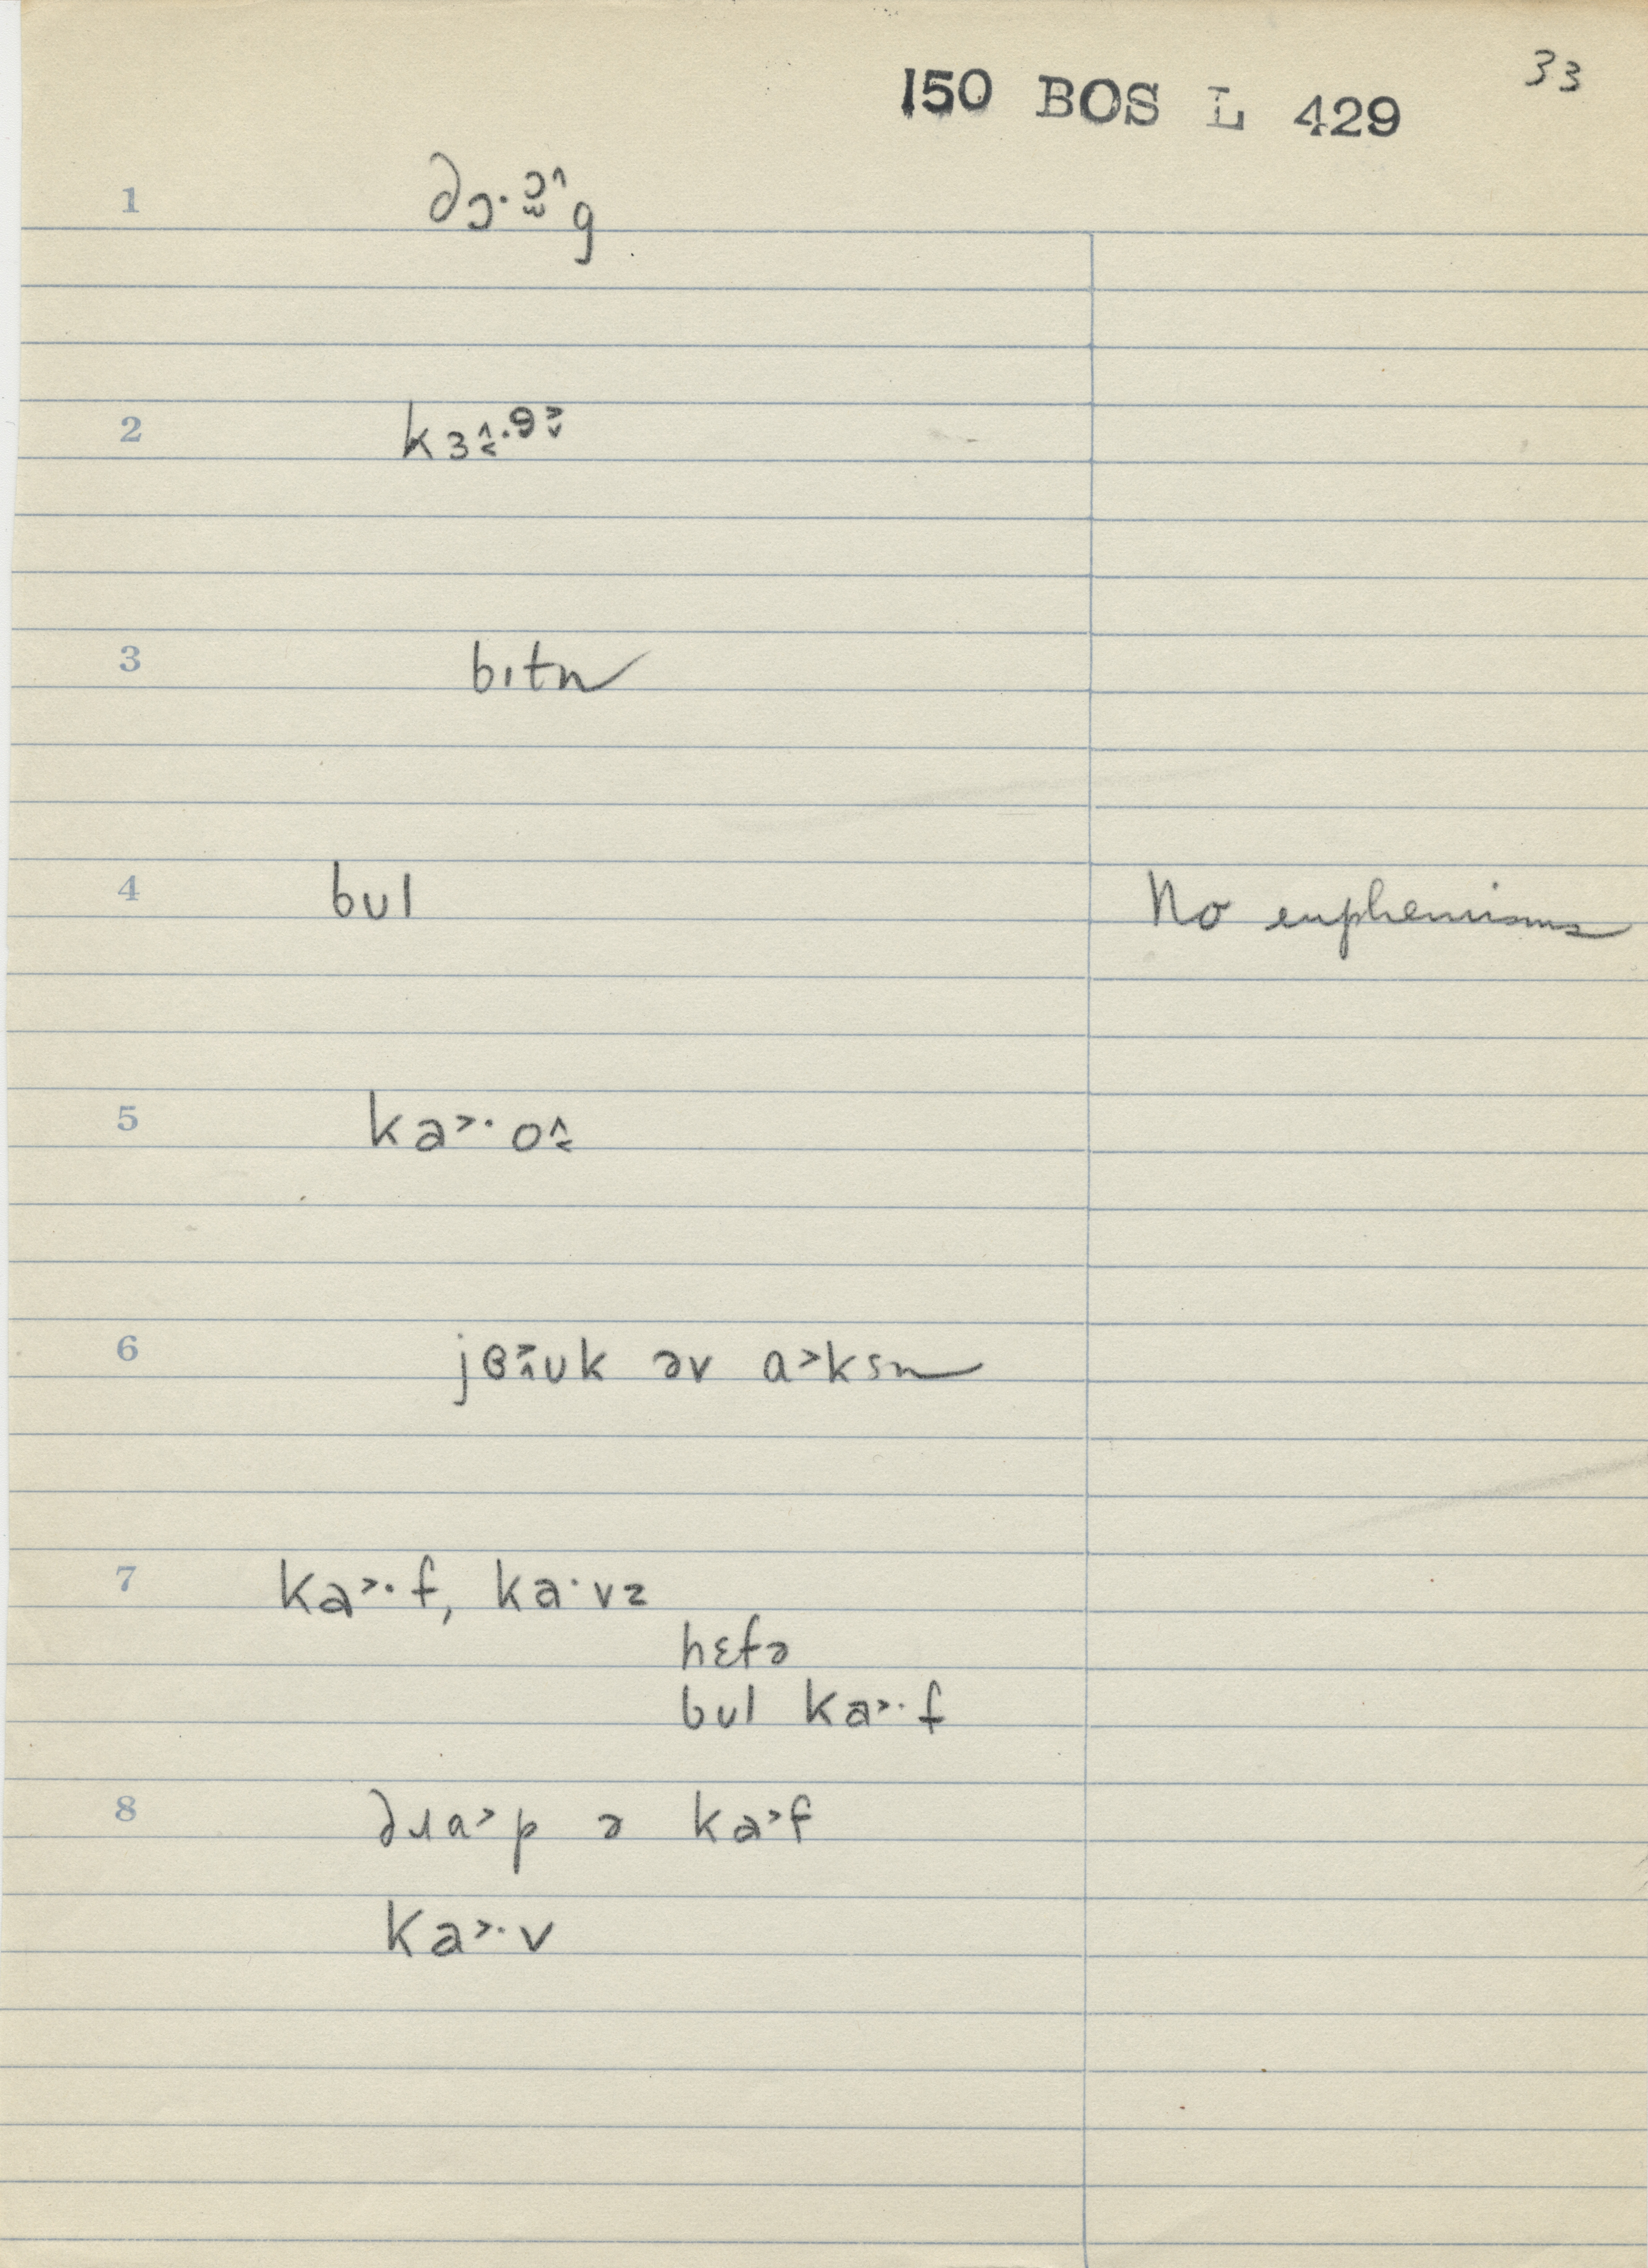 33
150 BOS L 429
1 dɔ·ɔ̯˄g
2 kɜ˄˂·ə˃˅
3 bɪtn
4 bʊl No euphemisms
5 ka˃· o˄˂
6 jɵ˃˄ʊk əv ɑ˃ksn
7 ka˃·f, ka·vz
hɛfə
bʊl ka˃·f
8 dɹɑ˃p ə ka˃f
ka˃·v